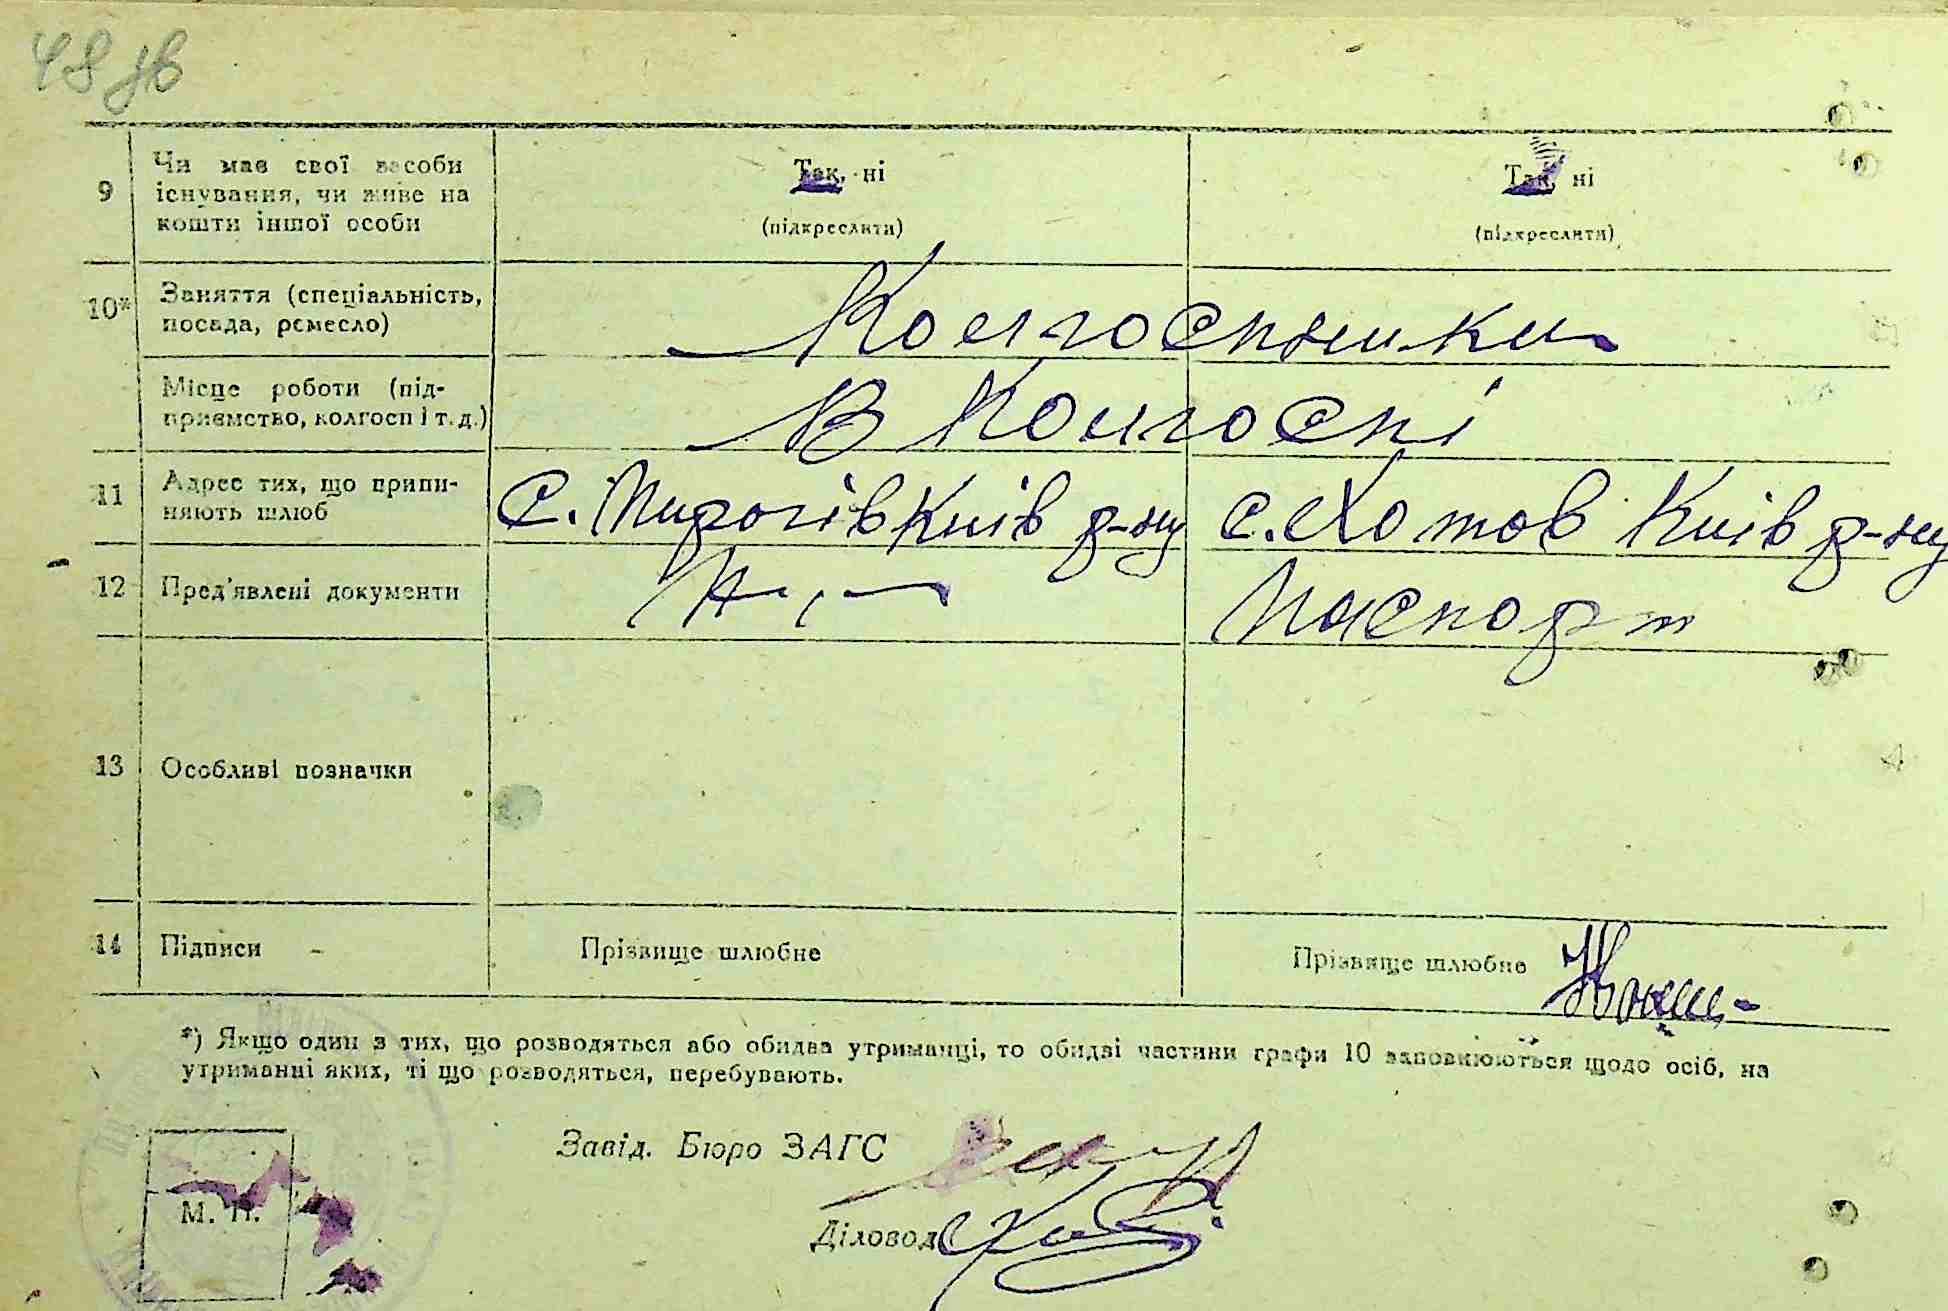 48 зв
9
Чи має свої засоби
існування, чи живе на
кошти іншої особи
Так, ні
(підкреслити)
Так, ні
(підкреслити)
10*
Заняття (спеціальність,
посада, ремесло)
Колгоспники
Місце роботи (під-
приємство, колгосп і т. д.)
В Колгоспі
11
Адрес тих, що припи-
няють шлюб
с. Пирогів Київ р-ну
с. Хотов Київ р-ну
12
Пред'явлені документи
Паспорт
13
Особливі позначки
14
Підписи
Прізвище шлюбне
Прізвище шлюбне
*) Якщо один з тих, що розводяться або обидва утриманці, то обидві частини графи 10 заповнюються щодо осіб, на
утриманні яких, ті що розводяться, перебувають.
Завід. Бюро ЗАГС
М. П.
Діловод